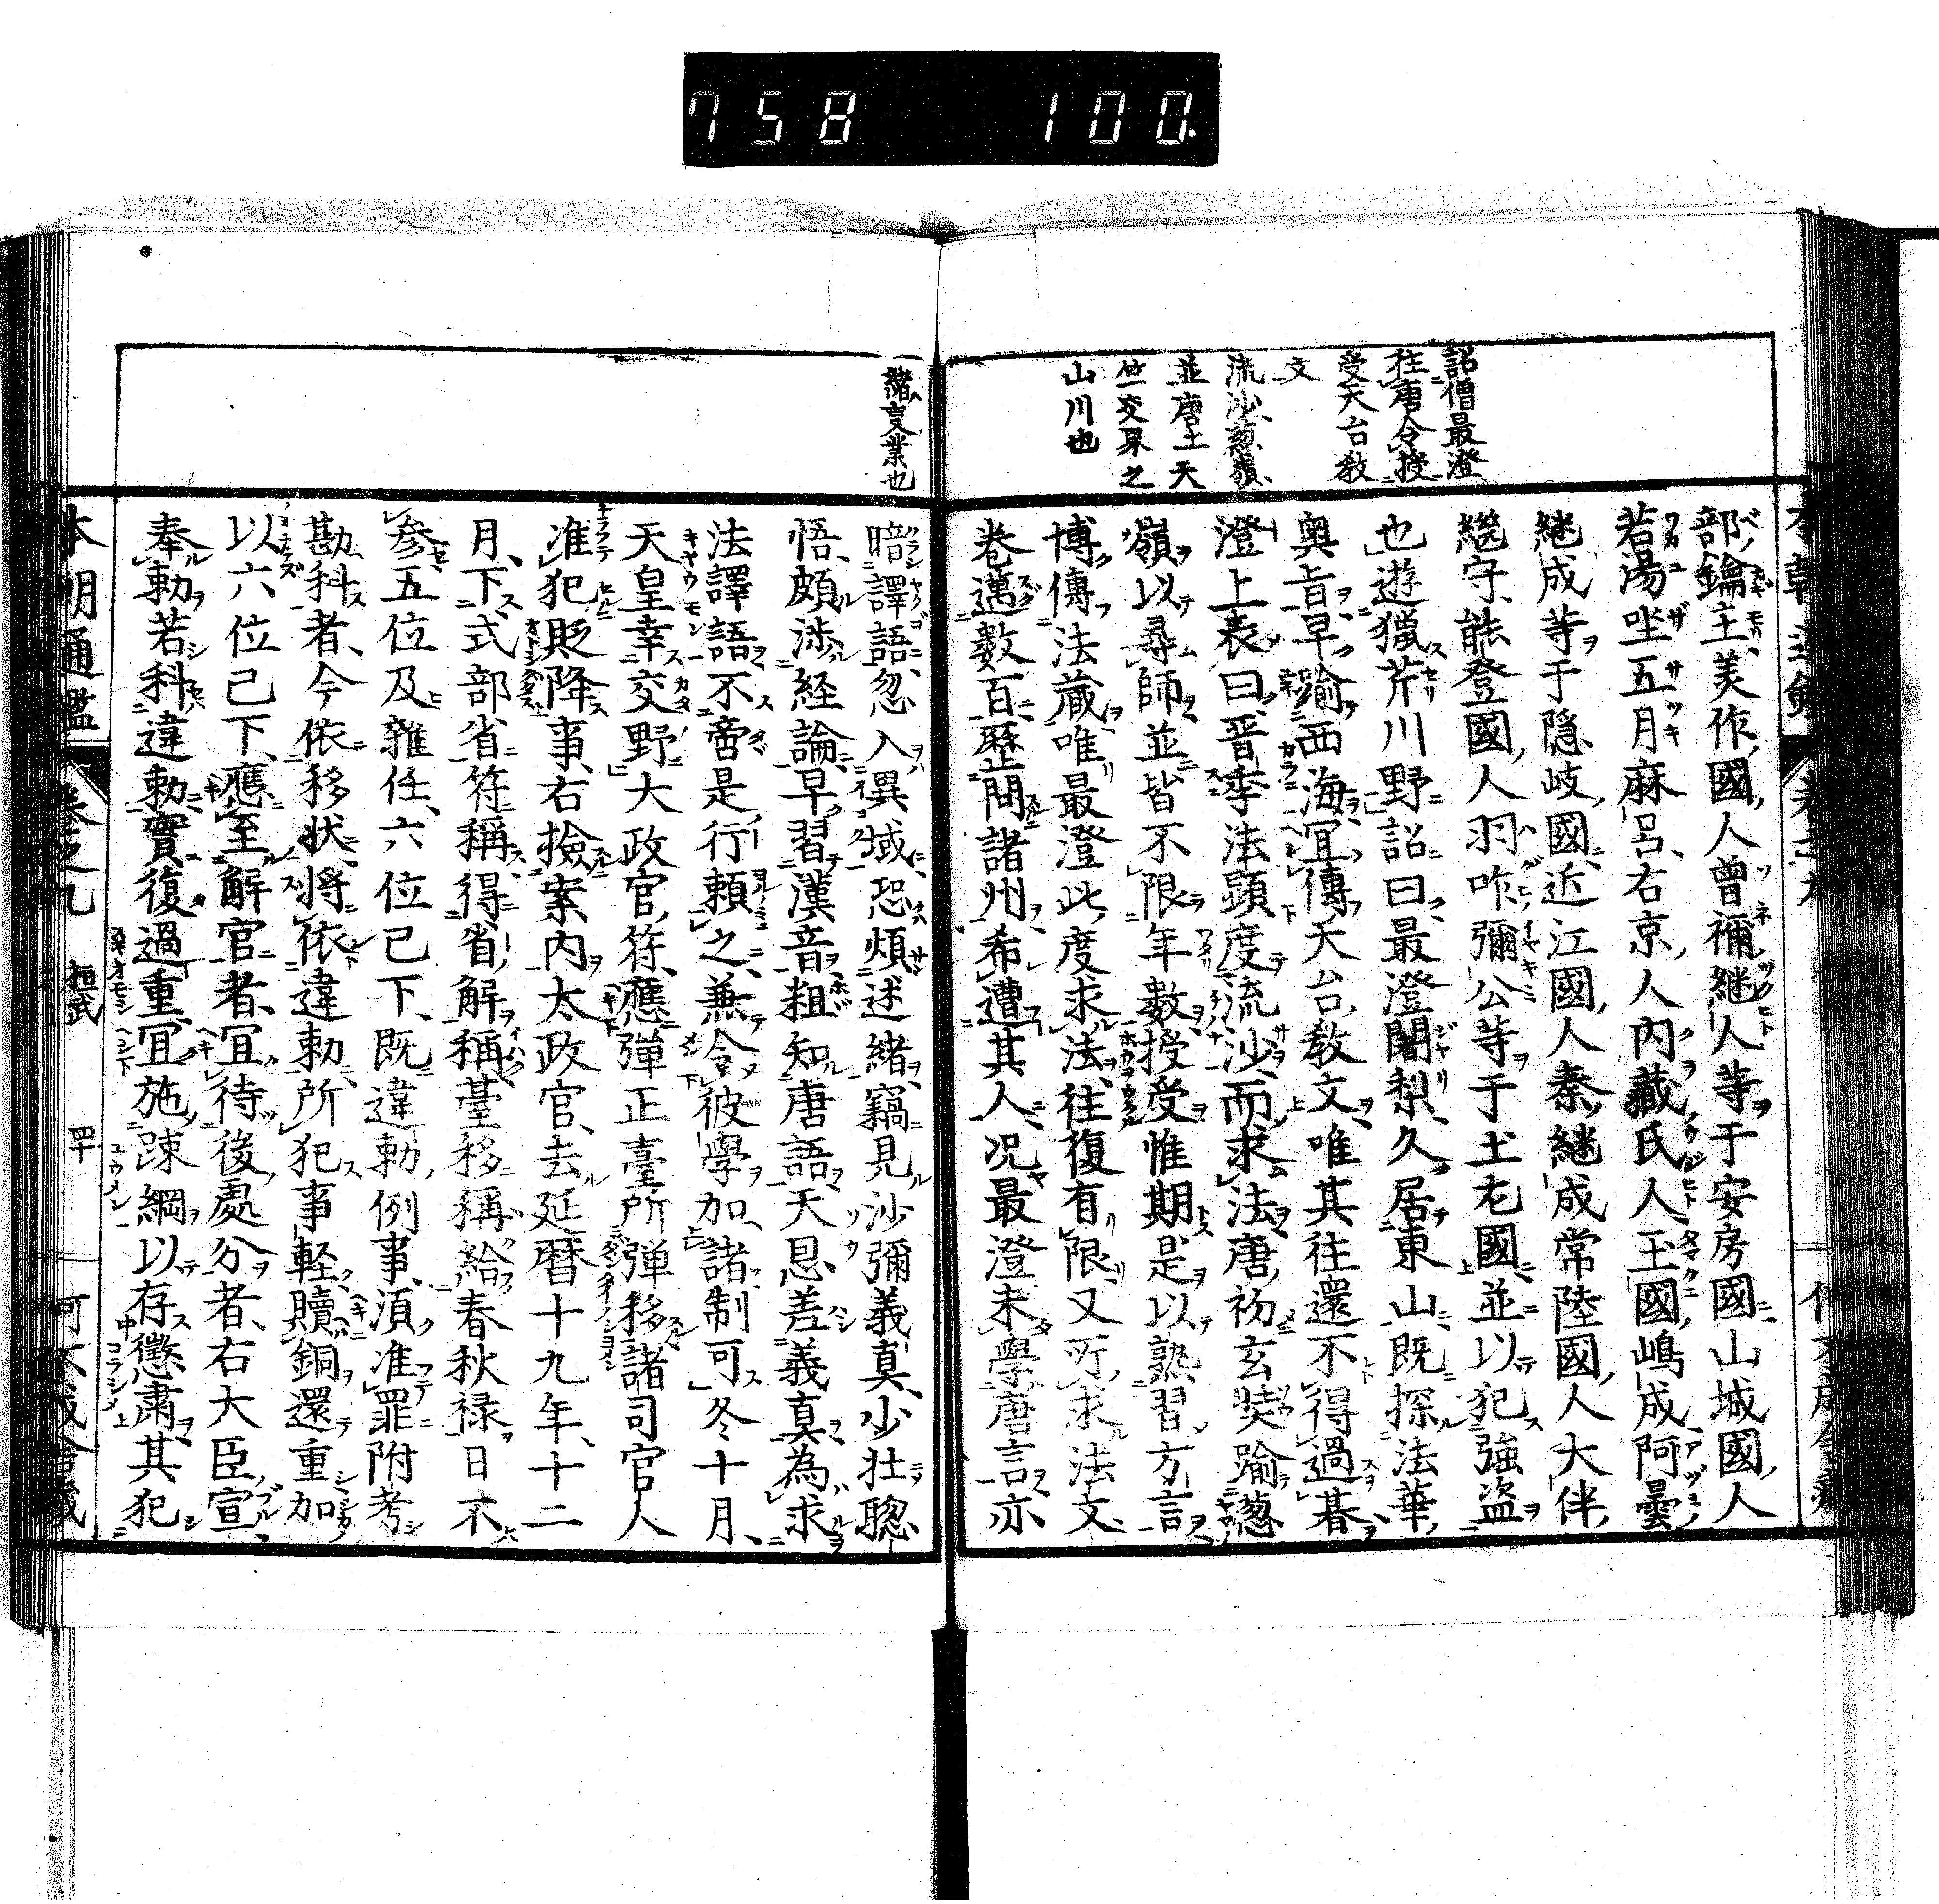 758 100.
詔僧最澄
往唐令授
受天台教
文
流沙葱嶺
並唐土天
竺交界之
山川也
部鑰主美作國人曾禰継人等于安房國山城國人
若湯坐五月麻呂右京人内藏氏人玉國嶋成阿曇
継成等于隠岐國近江國人秦継成常陸國人大伴
継守能登國人羽咋彌公等于土左國並以犯強盗
也遊獵芹川野詔曰最澄闍梨久居東山既探法華
奥旨早踰西海宜傳天台教文唯其往還不得過碁
澄上表曰晋季法顕度流沙而求法唐初玄奘踰葱
嶺以尋師並皆不限年數授受惟期是以熟習方言
博傳法藏唯最澄此度求法往復有限又所求法文
巻邁數百歴問諸州希遭其人況最澄未學唐言亦
緒事業也
暗譯語忽入異域恐煩述緒竊見沙彌義真少壮聡
悟頗渉経論早習漢音粗知唐語天恩差義真為求
法譯語不啻是行頼之兼令彼學加諸制可冬十月
天皇幸交野大政官符應弾正臺所弾移諸司官人
准犯貶降事右撿案内太政官去延暦十九年十二
月下式部省符稱得省解稱臺移稱給春秋禄日不
参五位及雜任六位已下既違勅例事須准罪附考
勘科者今依移状將依違勅所犯事軽贖銅還重加
以六位已下應至解官者宜待後處分者右大臣宣
奉勅若科違勅實復過重宜施踈綱以存懲肅其犯
本朝通鑑 巻之九 桓武 四十